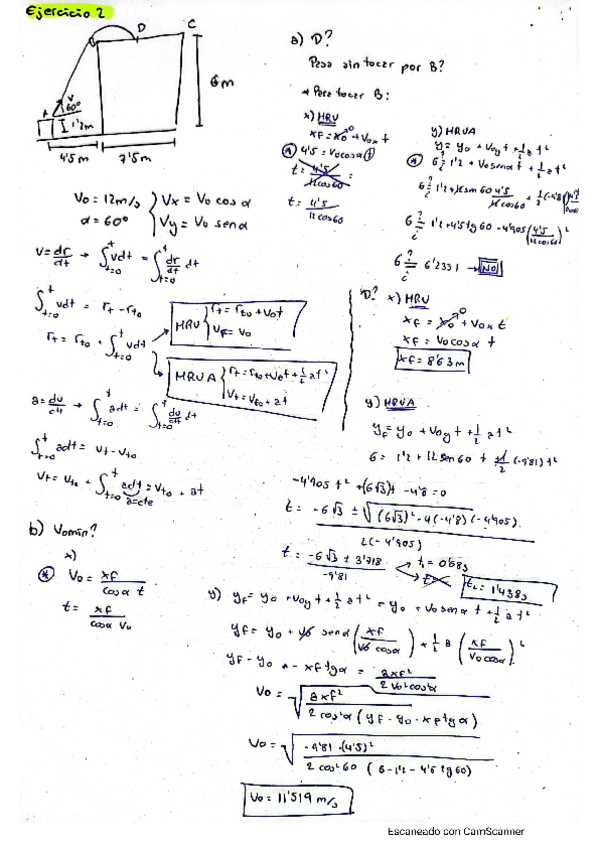 Ejercicio 2
D
C
6m
A
V
60°
1'2m
4'5m
7'5m
a) D?
Pasa sin tocar por B?
* Para tocar B:
x) MRU
xf = x0 + Vox t
4'5 = V0 cos α t
t = 4'5 / 12 cos 60
t = 4'5 / 12 cos 60
y) MRUA
y = y0 + Voy t + 1/2 a t²
6 =? 1'2 + V0 sen α t + 1/2 a t²
6 =? 1'2 + 12 sen 60 4'5 / 12 cos 60 + 1/2 (-9'8)
6 =? 1'2 + 4'5 tg 60 - 4'905 (4'5 / 12 cos 60)²
6 =? 6'2331 → NO
V0 = 12 m/s
α = 60°
Vx = V0 cos α
Vy = V0 sen α
V = dr/dt → ∫ t=0 t V dt = ∫ t=0 t dr/dt dt
∫ t=0 t V dt = rt - rt0
rt = rt0 + ∫ t=0 t V dt
MRU { rt = rt0 + V0 t
Vf = V0
MRUA { rt = rt0 + V0 t + 1/2 a t²
Vt = Vt0 + at
a = dv/dt → ∫ t=0 t a dt = ∫ t=0 t dv/dt dt
∫ t=0 t a dt = Vt - Vt0
Vt = Vt0 + ∫ t=0 t a dt = Vt0 + at
a = cte
D? x) MRU
xf = x0 + Vox t
xf = V0 cos α t
xf = 8'63 m
y) MRUA
yf = y0 + Voy t + 1/2 a t²
6 = 1'2 + 12 sen 60 t + 1/2 (-9'81) t²
-4'905 t² + (6√3) t - 4'8 = 0
t = -6√3 ± √((6√3)² - 4 (-4'8) (-4'905)) / 2 (-4'905)
t = -6√3 ± 3'718 / -9'81
t1 = 0'68 s
t2 = 1'438 s
b) V0 min?
x)
V0 = xf / cos α t
t = xf / cos α V0
y) yf = y0 + Voy t + 1/2 a t² = y0 + V0 sen α t + 1/2 a t²
yf = y0 + V0 sen α (xf / V0 cos α) + 1/2 a (xf / V0 cos α)²
yf - y0 - xf tg α = a xf² / 2 V0² cos² α
V0 = √(a xf² / 2 cos² α (yf - y0 - xf tg α))
V0 = √(-9'81 · (4'5)² / 2 cos² 60 (6 - 1'2 - 4'5 tg 60))
V0 = 11'519 m/s
Escaneado con CamScanner